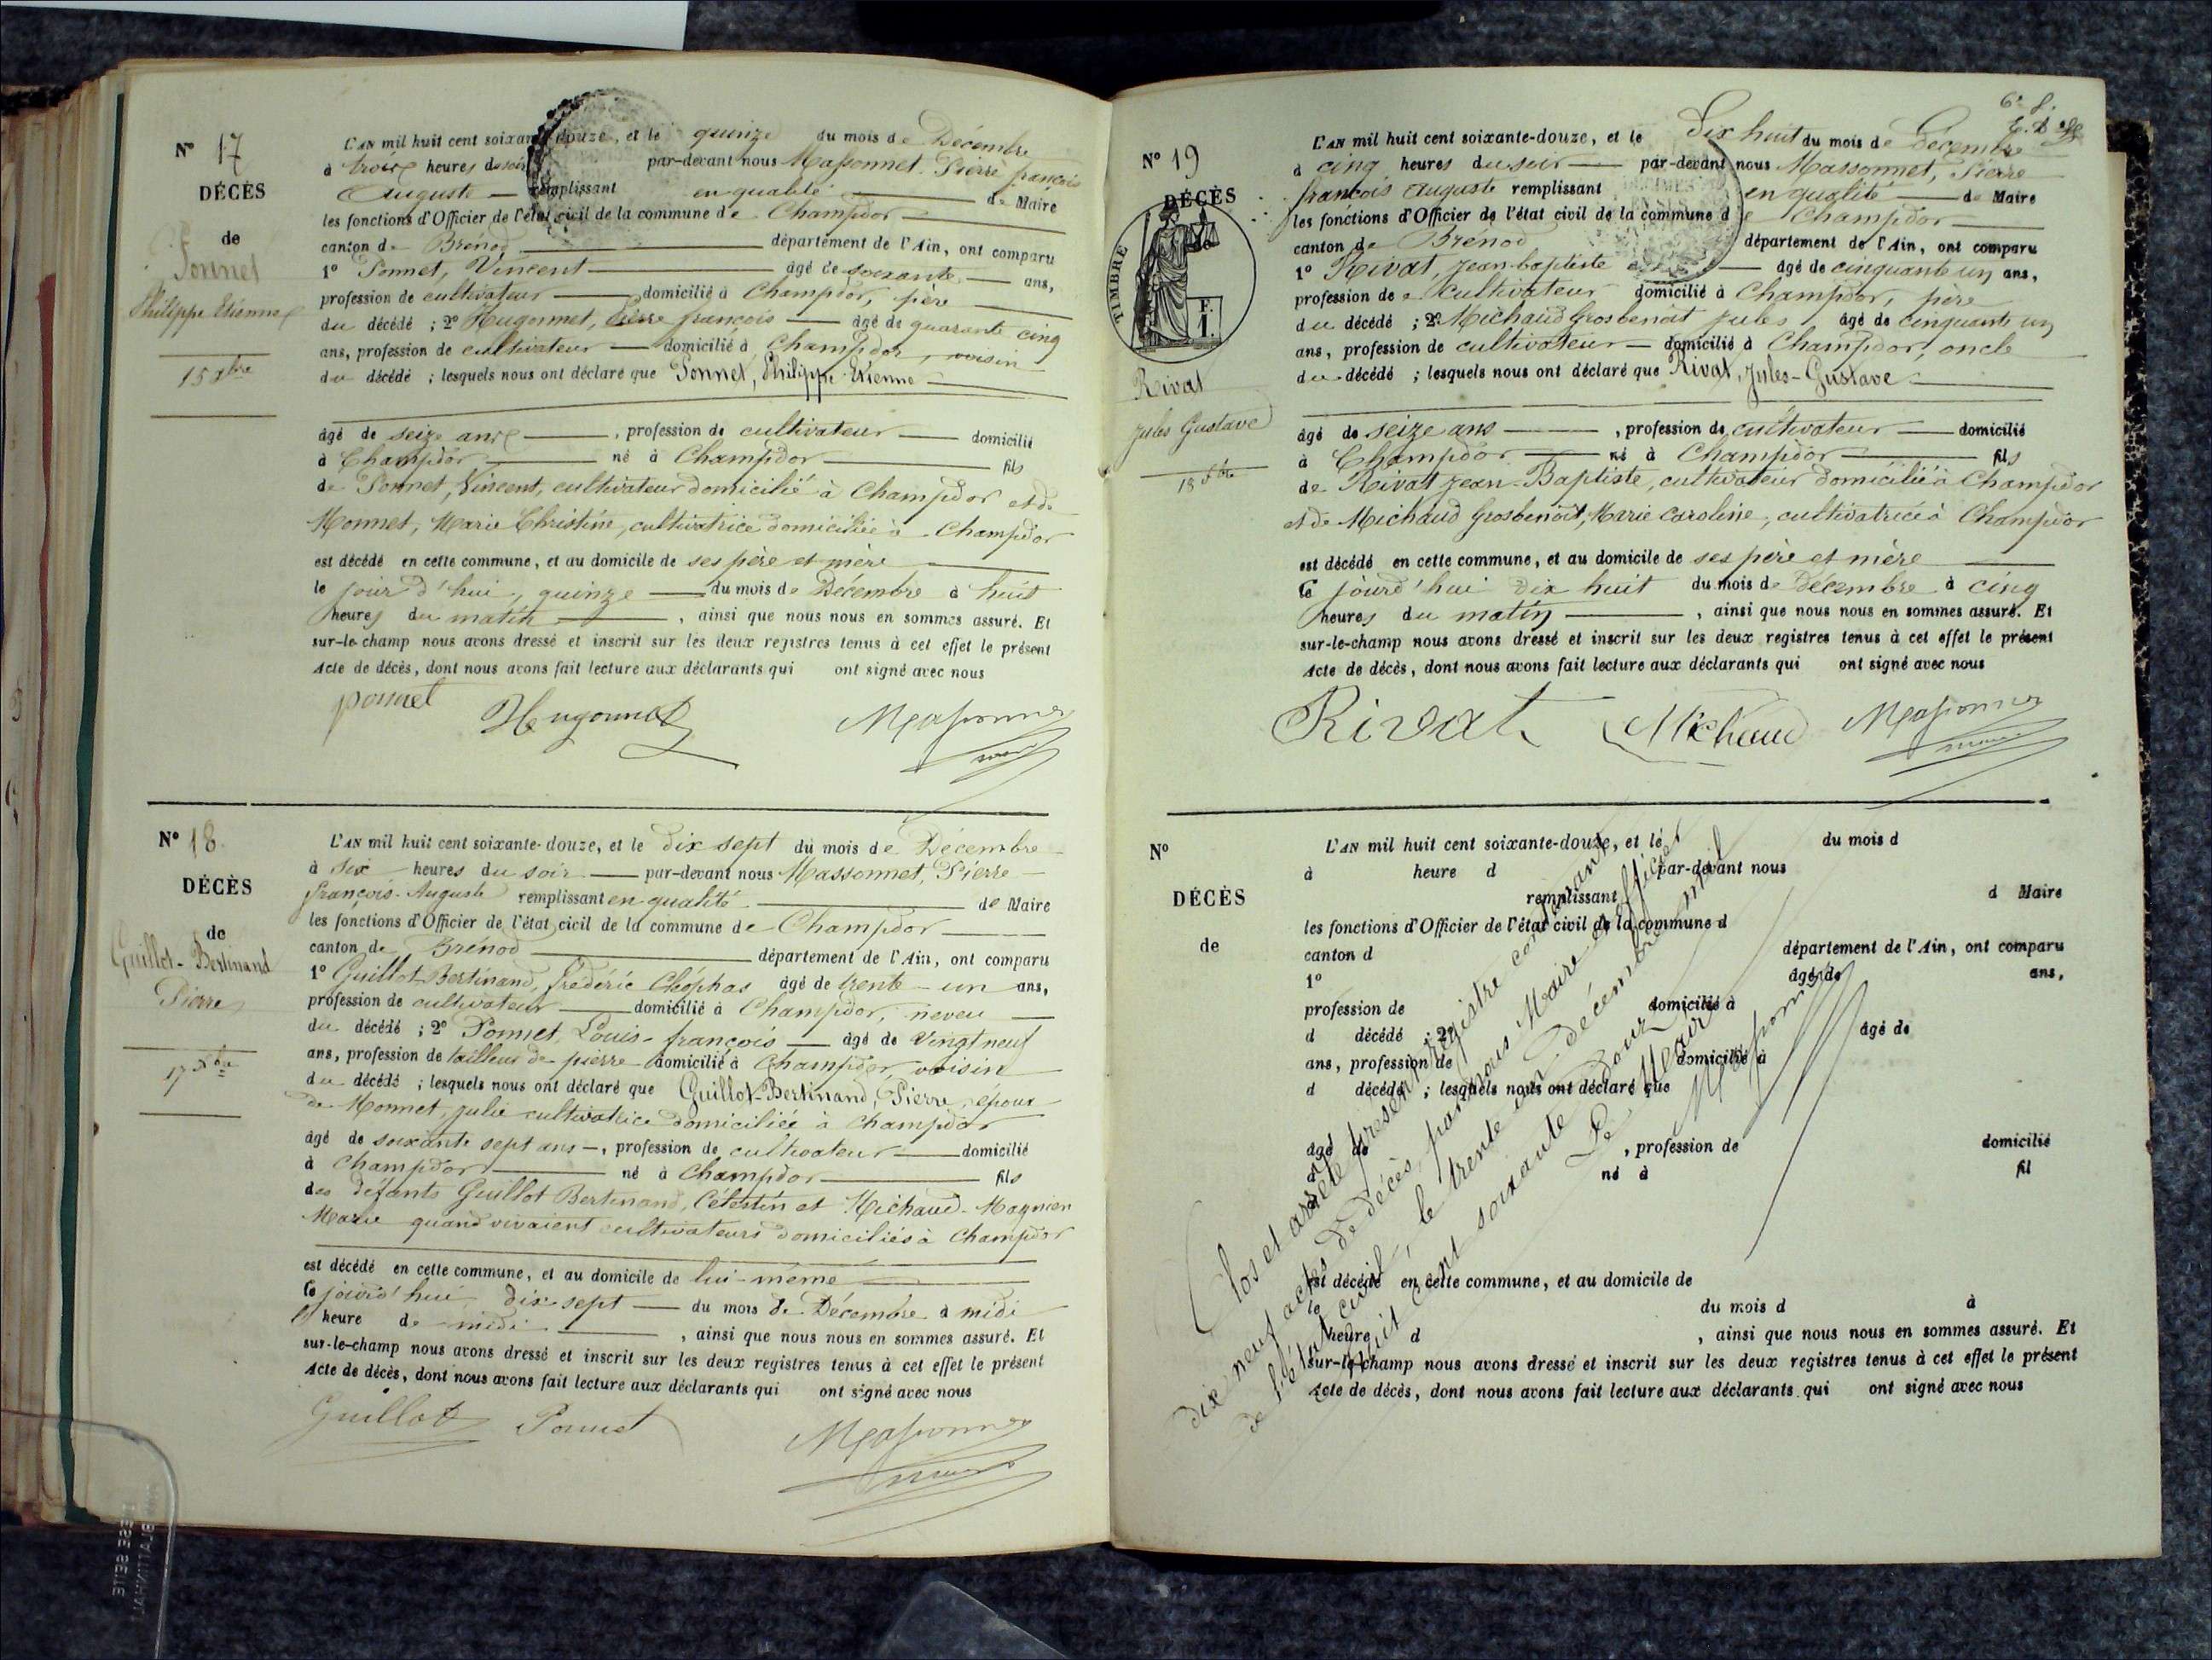 N° 17
DÉCÈS
de
Ponnet
Philippe Etienne
15 Xbre
L'AN mil huit cent soixante-douze, et le quinze du mois de Décembre
à trois heures du soir par-devant nous Massonnet, Pierre françois
Auguste remplissant en qualité de Maire
les fonctions d'Officier de l'état civil de la commune de Champdor
canton de Brénod département de l'Ain, ont comparu
1° Ponnet, Vincent âgé de soixante ans,
profession de cultivateur domicilié à Champdor, père
du décédé ; 2° Hugonnet, Pierre françois âgé de quarante cinq
ans, profession de cultivateur domicilié à Champdor, voisin
du décédé ; lesquels nous ont déclaré que Ponnet, Philippe-Etienne
âgé de seize ans, profession de cultivateur domicilié
à Champdor né à Champdor fils
de Ponnet, Vincent, cultivateur domicilié à Champdor et de
Monnet, Marie Christine, cultivatrice domiciliée à Champdor
est décédé en cette commune, et au domicile de ses père et mère
le jour d'hui, quinze du mois de Décembre à huit
heures du matin, ainsi que nous nous en sommes assuré. Et
sur-le-champ nous avons dressé et inscrit sur les deux registres tenus à cet effet le présent
Acte de décès, dont nous avons fait lecture aux déclarants qui ont signé avec nous
ponnet Hugonnet Massonnet
N° 18
DÉCÈS
de
Guillot-Bertinand
Pierre
17 Xbre
L'AN mil huit cent soixante-douze, et le dix sept du mois de Décembre
à six heures du soir par-devant nous Massonnet, Pierre
françois-Auguste remplissant en qualité de Maire
les fonctions d'Officier de l'état civil de la commune de Champdor
canton de Brénod département de l'Ain, ont comparu
1° Guillot-Bertinand, frédéric Cléophas âgé de trente-un ans,
profession de cultivateur domicilié à Champdor, neveu
du décédé ; 2° Ponnet, Louis-françois âgé de Vingt neuf
ans, profession de tailleur de pierre domicilié à Champdor, voisin
du décédé ; lesquels nous ont déclaré que Guillot-Bertinand, Pierre, époux
de Monnet, julie cultivatrice domiciliée à Champdor
âgé de soixante sept ans, profession de cultivateur domicilié
à Champdor né à Champdor fils
des défunts Guillot Bertinand, Célestin et Michaud-Magnien
Marie quand vivaient cultivateurs domiciliés à Champdor
est décédé en cette commune, et au domicile de lui-même
ce jourd'hui dix sept du mois de Décembre à midi
heure de midi, ainsi que nous nous en sommes assuré. Et
sur-le-champ nous avons dressé et inscrit sur les deux registres tenus à cet effet le présent
Acte de décès, dont nous avons fait lecture aux déclarants qui ont signé avec nous
Guillot Ponnet Massonnet
N° 19
DÉCÈS
TIMBRE
F.
1.
Rivat
Jules Gustave
18 Xbre
L'AN mil huit cent soixante-douze, et le Dix huit du mois de Décembre
à cinq heures du soir par-devant nous Massonnet, Pierre
françois Auguste remplissant en qualité de Maire
les fonctions d'Officier de l'état civil de la commune de Champdor
canton de Brénod département de l'Ain, ont comparu
1° Rivat, jean-baptiste âgé de cinquante un ans,
profession de cultivateur domicilié à Champdor, père
du décédé ; 2° Michaud Grosbenoit jules âgé de cinquante un
ans, profession de cultivateur domicilié à Champdor, oncle
du décédé ; lesquels nous ont déclaré que Rivat, Jules-Gustave
âgé de seize ans, profession de cultivateur domicilié
à Champdor né à Champdor fils
de Rivat jean-Baptiste, cultivateur domicilié à Champdor
et de Michaud Grosbenoit, Marie Caroline, cultivatrice à Champdor
est décédé en cette commune, et au domicile de ses père et mère
Ce jourd'hui dix huit du mois de Décembre à cinq
heures du matin, ainsi que nous nous en sommes assuré. Et
sur-le-champ nous avons dressé et inscrit sur les deux registres tenus à cet effet le présent
Acte de décès, dont nous avons fait lecture aux déclarants qui ont signé avec nous
Rivat Michaud Massonnet
N°
DÉCÈS
de
L'AN mil huit cent soixante-douze, et le du mois d
à heure d par-devant nous
remplissant d Maire
les fonctions d'Officier de l'état civil de la commune d
canton d département de l'Ain, ont comparu
1° âgé de ans,
profession de domicilié à
d décédé ; 2° âgé de
ans, profession de domicilié à
d décédé ; lesquels nous ont déclaré que
âgé de , profession de domicilié
à né à fil
est décédé en cette commune, et au domicile de
le du mois d à
heure d , ainsi que nous nous en sommes assuré. Et
sur-le-champ nous avons dressé et inscrit sur les deux registres tenus à cet effet le présent
Acte de décès, dont nous avons fait lecture aux déclarants qui ont signé avec nous
Clos et arrêté le présent registre contenant
dix neuf actes de décès, par nous Maire et officier
de l'état civil, le trente un décembre mil
huit cent soixante douze
Le Maire
Massonnet